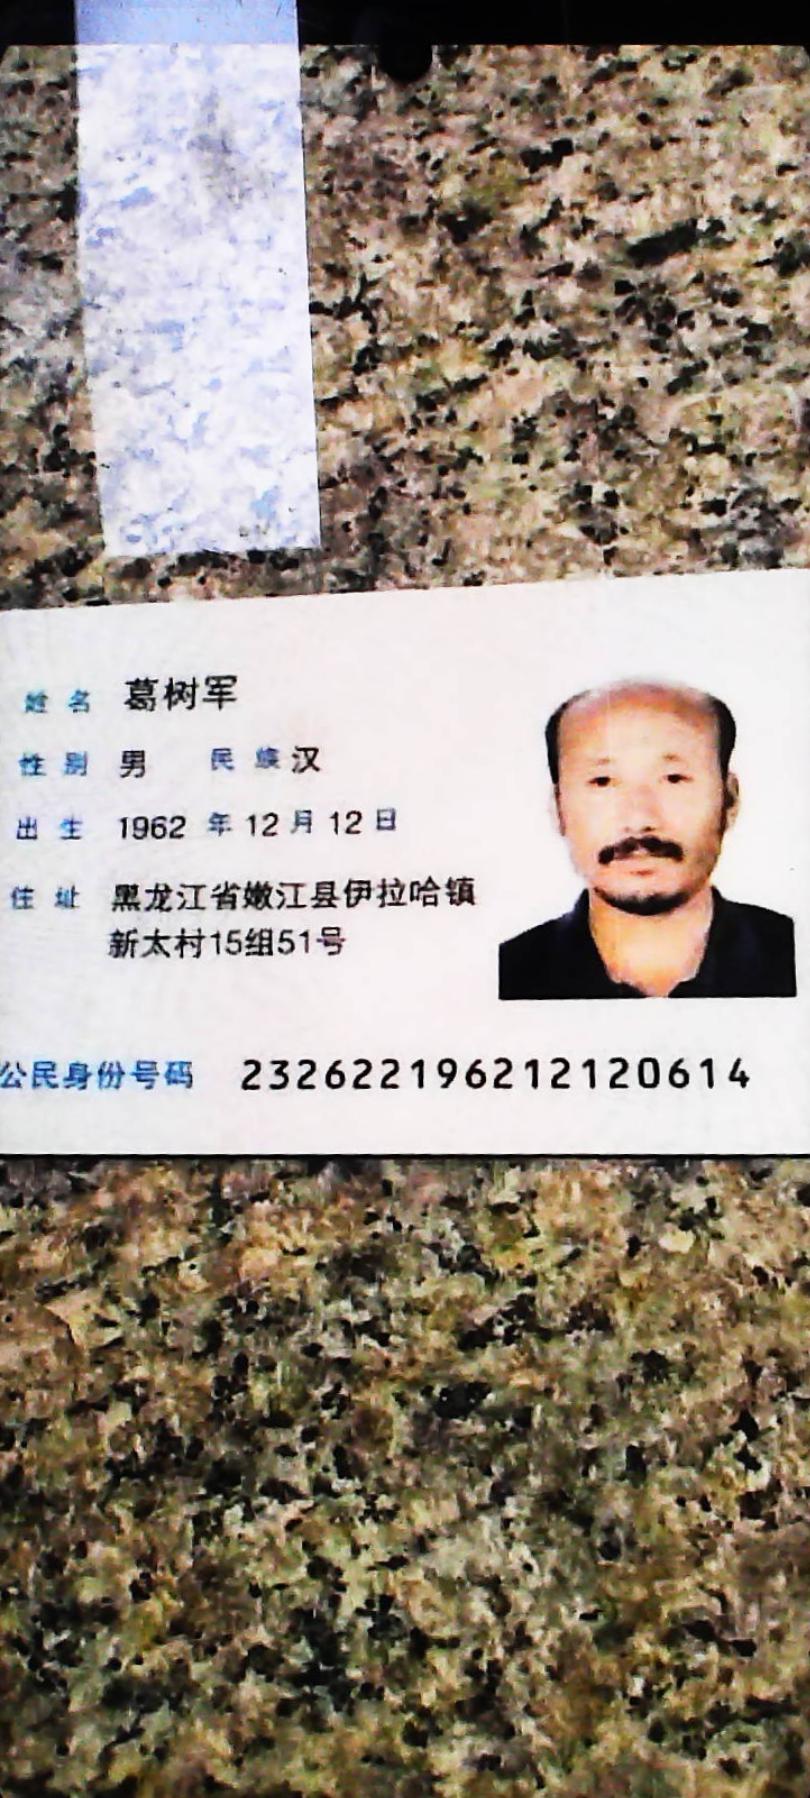 姓名 葛树军
性别 男 民族 汉
出生 1962 年 12 月 12 日
住址 黑龙江省嫩江县伊拉哈镇
新太村15组51号
公民身份号码 232622196212120614